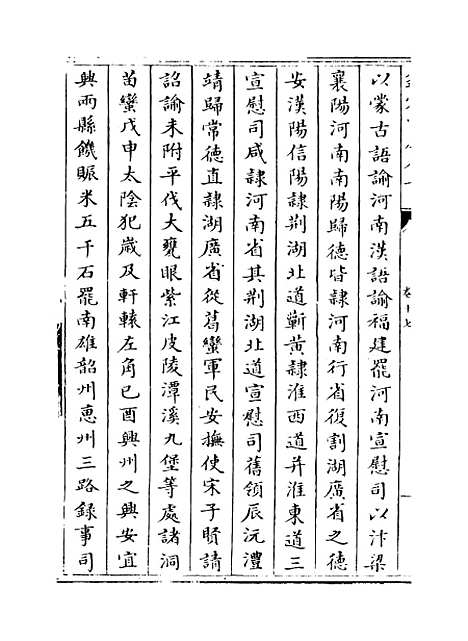 以蒙古語諭河南漢語諭福建罷河南宣慰司以汴梁
襄陽河南南陽歸德皆隸河南行省復割湖廣省之德
安漢陽信陽隸荆湖北道蘄黄隸淮西道并淮東道三
宣慰司咸隸河南省其荆湖北道宣慰司舊領辰沅澧
靖歸常德直隸湖廣省從葛蠻軍民安撫使宋子賢請
詔諭未附平伐大甕眼紫江皮陵潭溪九堡等處諸洞
苗蠻戊申太陰犯歲及軒轅左角己酉興州之興安宜
興兩縣饑賑米五千石罷南雄韶州惠州三路錄事司
卷十七